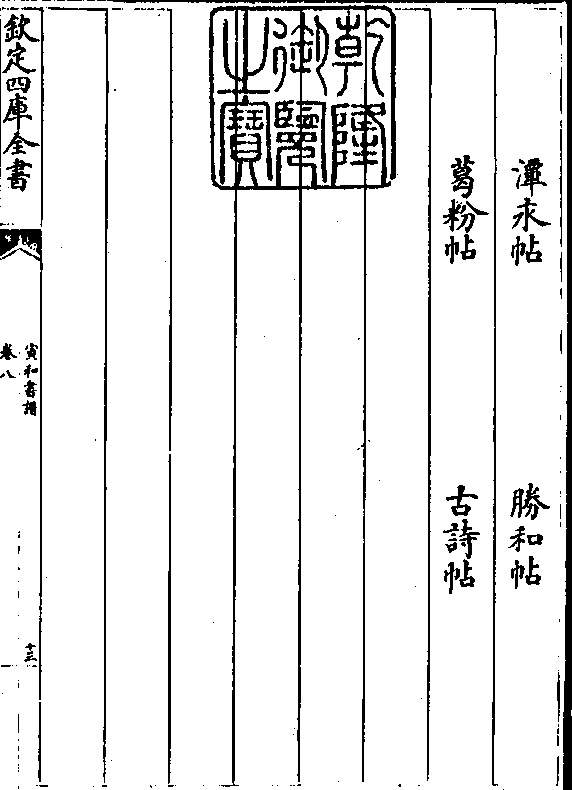 潭求帖 勝和帖
葛粉帖 古詩帖
乾隆御覽之寶
欽定四庫全書
宣和書譜
卷八
十三